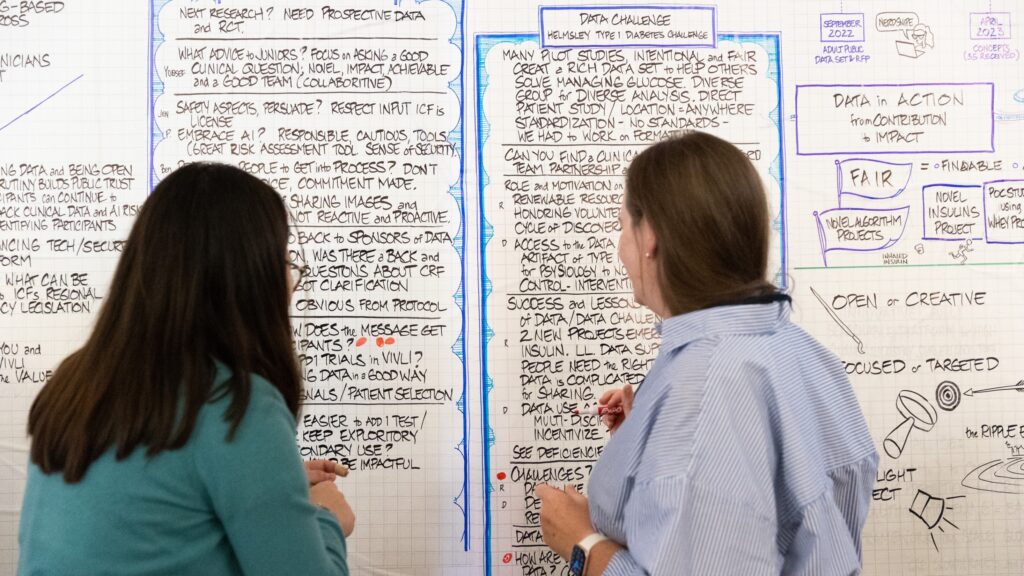 G-BASED
OSS
NICIANS
T
NG DATA AND BEING OPEN
RUTINY BUILDS PUBLIC TRUST
IPANTS CAN CONTINUE TO
ACK CLINICAL DATA AND AI RISK
DENTIFYING PARTICIPANTS
NCING TECH/SECUR
FORM
WHAT CAN BE
TO ICF'S REGIONAL
CY LEGISLATION
YOU AND
VIVLI
THE VALUE
NEXT RESEARCH? NEED PROSPECTIVE DATA
AND RCT.
WHAT ADVICE TO JUNIORS? FOCUS ON ASKING A GOOD
CLINICAL QUESTION, NOVEL, IMPACT, ACHIEVABLE
AND A GOOD TEAM (COLLABORITIVE)
SAFETY ASPECTS, PERSUADE? RESPECT INPUT ICF IS
LICENSE
EMBRACE AI? RESPONSIBLE, CAUTIOUS, TOOLS
(GREAT RISK ASSESSMENT TOOL SENSE OF SECURITY)
PEOPLE TO GET INTO PROCESS? DON'T
COMMITMENT MADE.
SHARING IMAGES AND
NOT REACTIVE AND PROACTIVE.
BACK TO SPONSORS OF DATA
WAS THERE A BACK AND
QUESTIONS ABOUT CRF
CLARIFICATION
OBVIOUS FROM PROTOCOL
DOES THE MESSAGE GET
IPANTS?
TRIALS IN VIVLI?
NG DATA IN A GOOD WAY
NALS/PATIENT SELECTION
EASIER TO ADD 1 TEST/
KEEP EXPLORITORY
NDARY USE?
BE IMPACTFUL
DATA CHALLENGE
HELMSLEY TYPE 1 DIABETES CHALLENGE
MANY PILOT STUDIES, INTENTIONAL AND FAIR
CREAT A RICH DATA SET TO HELP OTHERS
SOLVE MANAGING GLUCOSE. DIVERSE
GROUP FOR DIVERSE ANALYSIS. DIRECT
PATIENT STUDY/LOCATION = ANYWHERE
STANDARDIZATION - NO STANDARDS -
WE HAD TO WORK ON FORMAT
CAN YOU FIND A CLINICA
TEAM PARTNERSHIP
ROLE AND MOTIVATION
RENEWABLE RESOUR
HONORING VOLUNTE
CYCLE OF DISCOVER
ACCESS TO THE DATA
ARTIFACT OF TYPE
FOR PSYSIOLOGY TO
CONTROL - INTERVENT
SUCCESS AND LESSO
OF DATA/DATA CHALL
2 NEW PROJECTS EME
INSULIN. LL DATA SUP
PEOPLE NEED THE RIGH
DATA IS COMPLICATE
FOR SHARING.
DATA USE
MULTI-DISCIP
INCENTIVIZE
SEE DEFICIENCIE
CHALLENGES?
DATA
HOW ARE
DATA?
SEPTEMBER
2022
ADULT PUBLIC
DATA SET & RFP
NERDSNIPE
APRIL
2023
CONCEPTS
(35 RECEIVED)
DATA IN ACTION
FROM CONTRIBUTION
TO IMPACT
FAIR
= • FINDABLE
NOVEL ALGORITHM
PROJECTS
NOVEL
INSULINS
PROJECT
INHALED
INSULIN
POC STUD
USING
WHEY PRO
OPEN OR CREATIVE
FOCUSED OR TARGETED
THE RIPPLE E
LIGHT
ECT